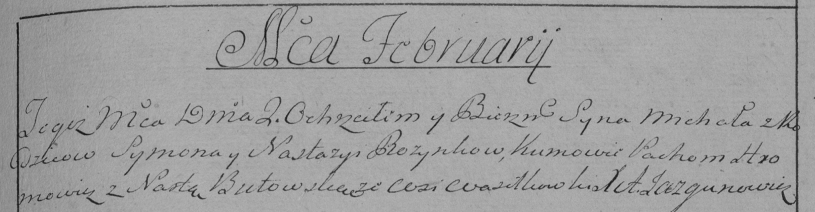 Mca Februarij
Tegoż Mca Dnia 2. Ochrzciłem y Bierzm Syna Michała z Ro
dzicow Symona y Nastazyi Rozynkow, Kumowie Pachom Hro
mowicz z Nastą Butowską ze wsi